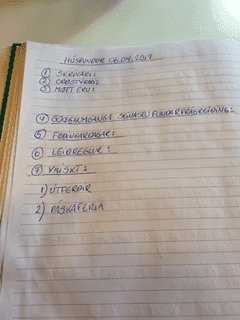 HÚSFUNDUR 06.04.2017
① SKRIVARI:
② ORÐSTÝRARI:
③ MØTT ERU:
④ GJØGNUMGONGA SEINASTU FUNDARFRÁGREIÐING:
⑤ FÍGGINGARDAGAR:
⑥ LEIÐREGLUR:
⑦ YMISKT:
1) ÚTFERÐIR
2) PÁSKAFERIA